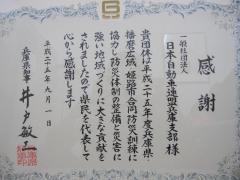 感謝
一般社団法人
日本自動車連盟兵庫支部様
貴団体は平成二十五年度兵庫県・
播磨広域・姫路市合同防災訓練に
協力し防災体制の整備と災害に
強い地域づくりに大きな貢献を
されましたので県民を代表して
心から感謝します
平成二十五年九月一日
兵庫県知事 井戸敏三